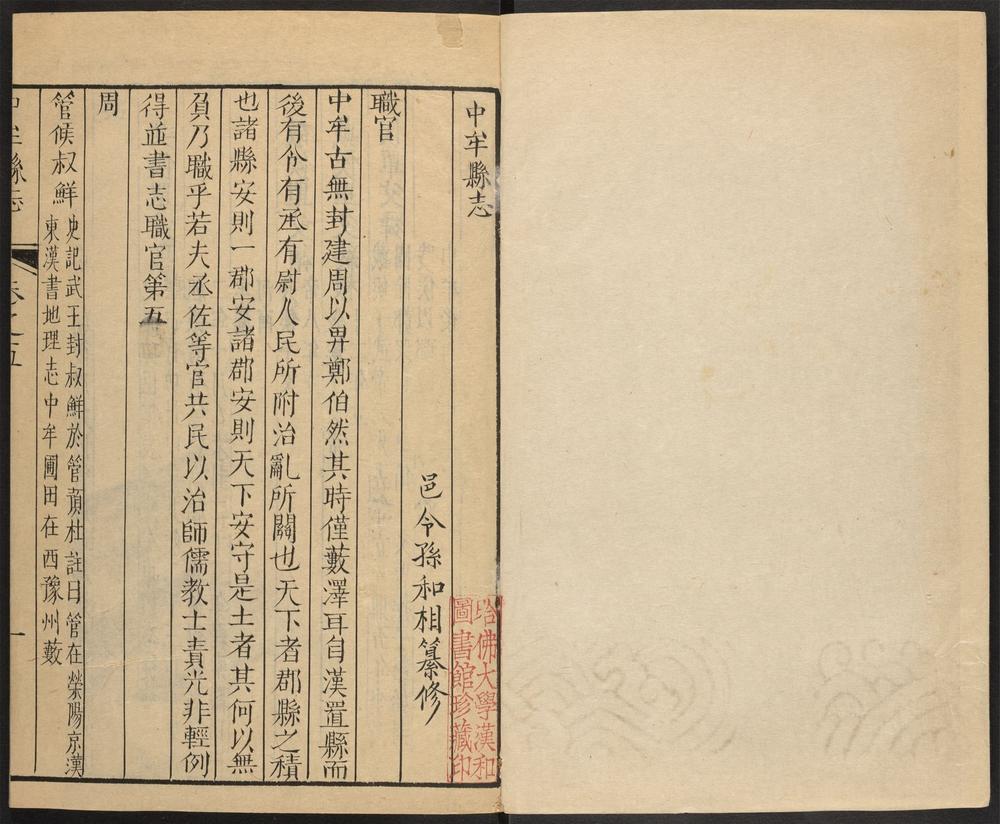 中牟縣志
邑令孫和相纂修
職官
中牟古無封建周以畀鄭伯然其時僅藪澤耳自漢置縣而
後有令有丞有尉人民所附治亂所關也天下者郡縣之積
也諸縣安則一郡安諸郡安則天下安守是土者其何以無
負乃職乎若夫丞佐等官共民以治師儒教士責光非輕例
得並書志職官第五
周
管侯叔鮮
史記武王封叔鮮於管預杜註曰管在滎陽京漢
東漢書地理志中牟圃田在西豫州藪
中牟縣志
卷之五
一
哈佛大學漢和
圖書館珍藏印